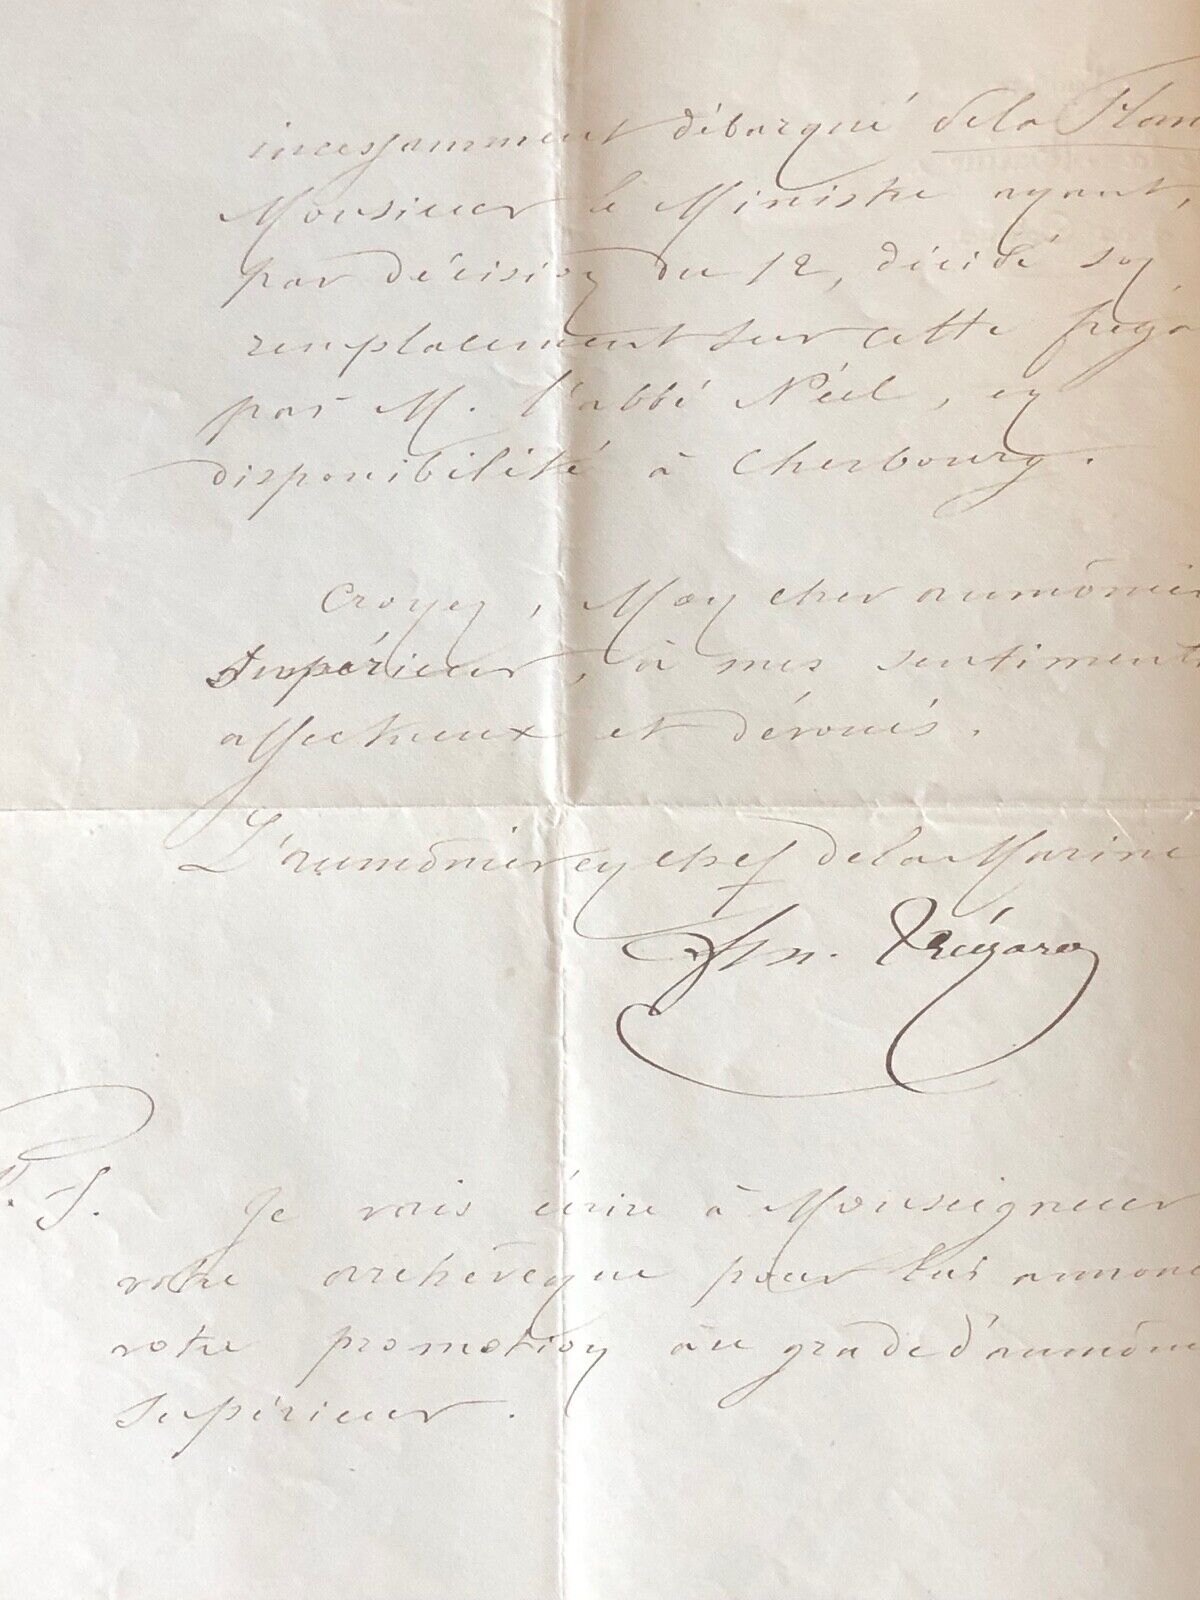 incessamment débarqué de la Flan
Monsieur le Ministre ayant,
par décision du 12, décidé son
remplacement sur cette fréga
par M. l'abbé Néel, en
disponibilité à Cherbourg.
Croyez, Mon cher aumônier
Supérieur, à mes sentiments
affectueux et dévoués.
L'aumônier en chef de la Marine
Trégaro
P.S. Je vais écrire à Monseigneur
votre archevêque pour lui annonc
votre promotion au grade d'aumôni
supérieur.